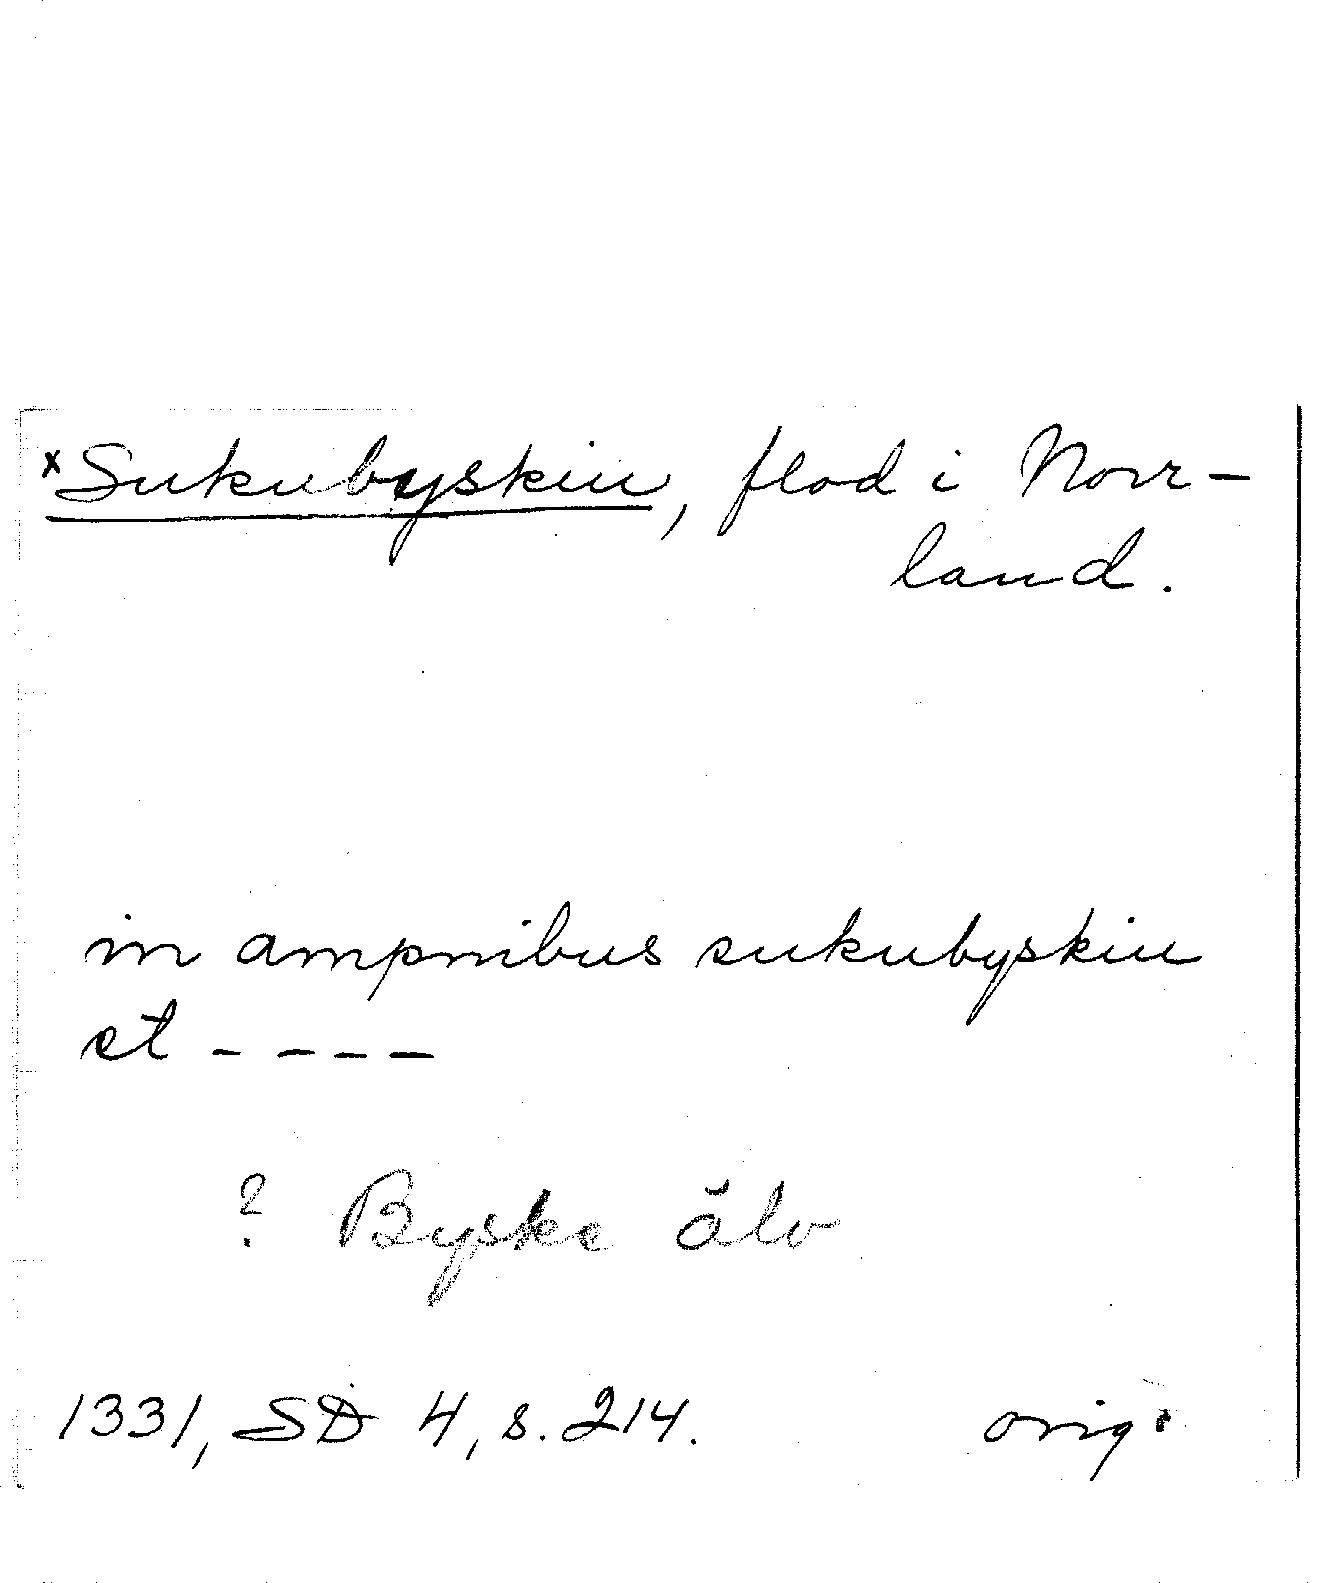 xSukubyskiu, flod i Norr-
land.
in ampnibus sukubyskiu
et - - - -
? Byske älv
1331, SD 4, s. 214. orig.